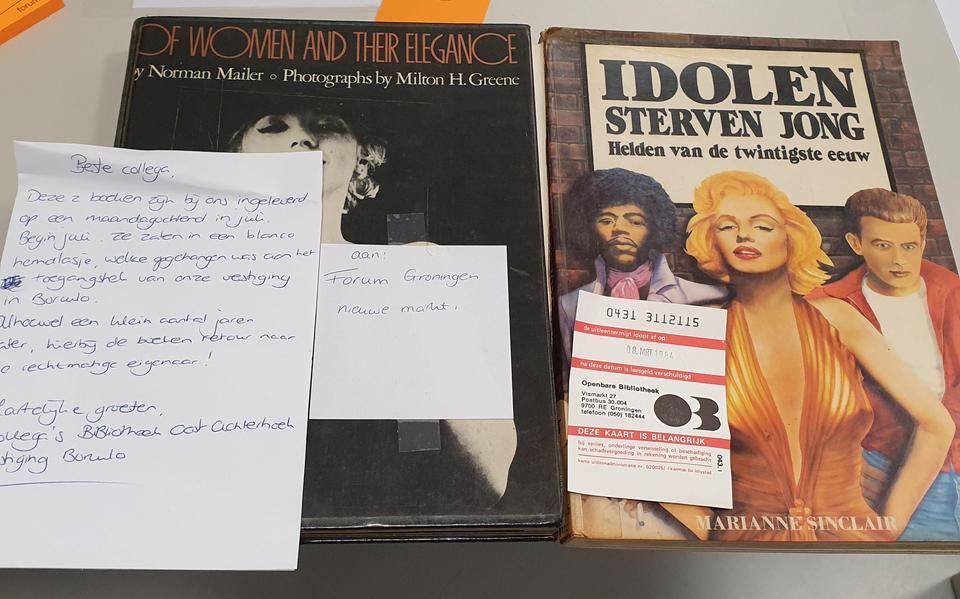 forum
OF WOMEN AND THEIR ELEGANCE
y Norman Mailer • Photographs by Milton H. Greene
IDOLEN
STERVEN JONG
Helden van de twintigste eeuw
MARIANNE SINCLAIR
Beste collega,
Deze 2 boeken zijn bij ons ingeleverd
op een maandagochtend in juli.
Begin juli. Ze zaten in een blanco
hemdtasje, welke gehangen was aan het
toegangshek van onze vestiging
in Borculo.
Alhoewel een klein aantal jaren
ater, hierbij de boeken retour naar
e rechtmatige eigenaar!
artelijke groeten,
ollega's Bibliotheek Oost Achterhoek
stiging Borculo
aan:
Forum Groningen
nieuwe markt.
0431 3112115
de uitleentermijn loopt af op:
08. MRT 1984
na deze datum is leesgeld verschuldigd
Openbare Bibliotheek
Vismarkt 27
Postbus 30.004
9700 RE Groningen
telefoon (050) 182444
OB
DEZE KAART IS BELANGRIJK
bij verlies, onderlinge verwisseling of beschadiging
kan schadevergoeding in rekening worden gebracht
043.1